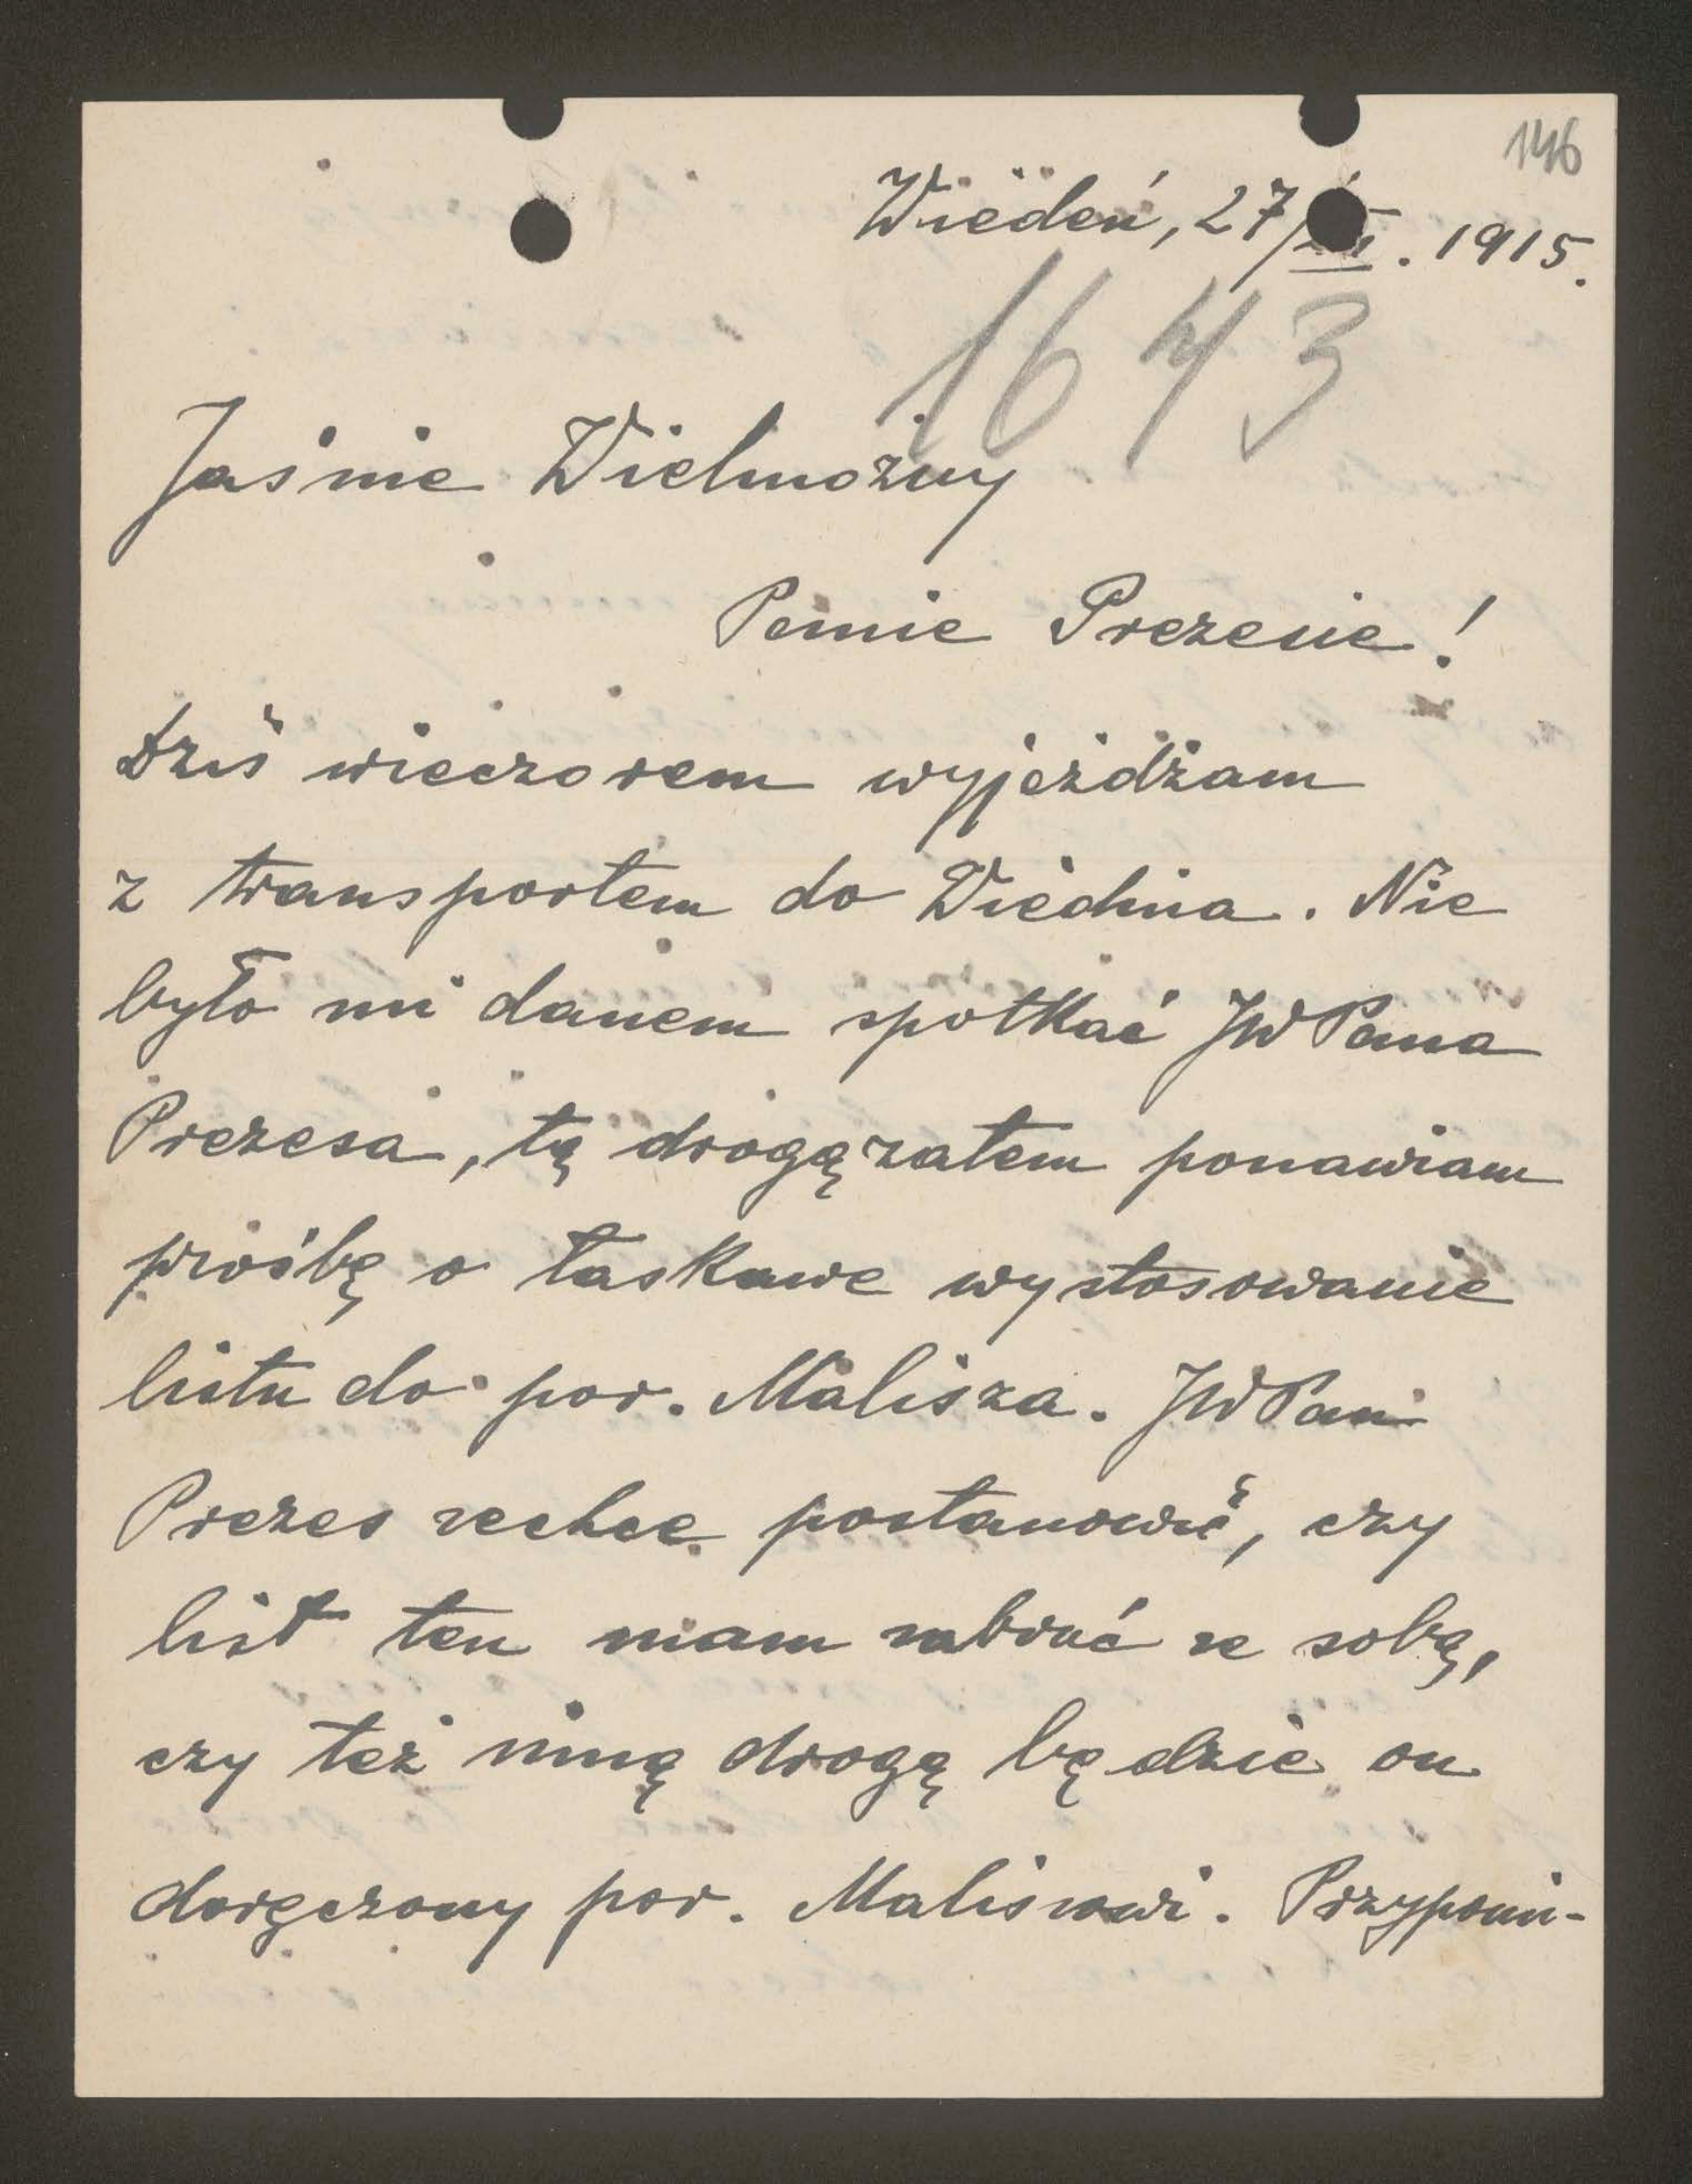 146
Wiedeń, 27/ . 1915.
1643
Jaśnie Wielmożny
Panie Prezesie!
Dziś wieczorem wyjeżdżam
z transportem do Wiednia. Nie
było mi danem spotkać JWPana
Prezesa, tą drogą zatem ponawiam
prośbę o łaskawe wystosowanie
listu do por. Malisza. JWPan
Prezes zechce postanowić, czy
list ten mam zabrać ze sobą,
czy też inną drogą będzie on
doręczony por. Maliszowi. Przypomi-